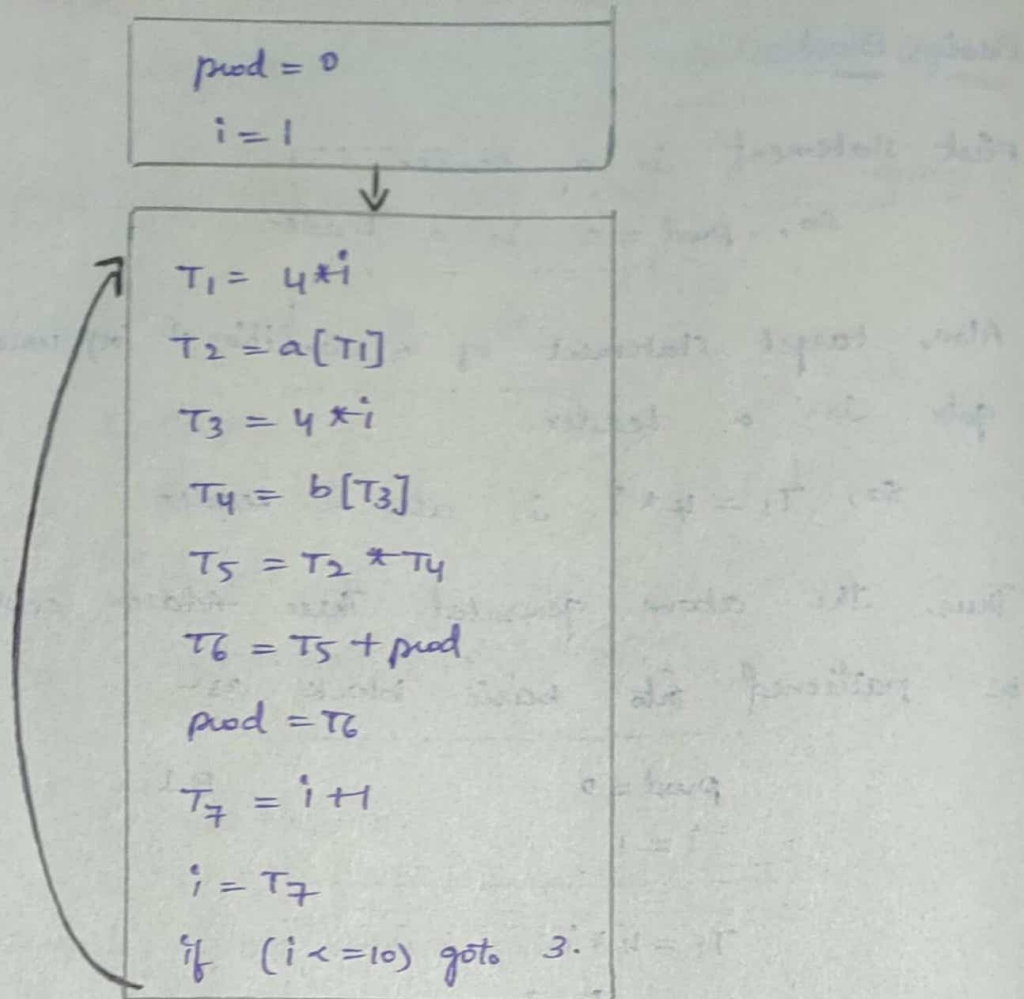 prod = 0
i = 1
T1 = 4*i
T2 = a[T1]
T3 = 4*i
T4 = b[T3]
T5 = T2 * T4
T6 = T5 + prod
prod = T6
T7 = i+1
i = T7
if (i <= 10) goto 3.